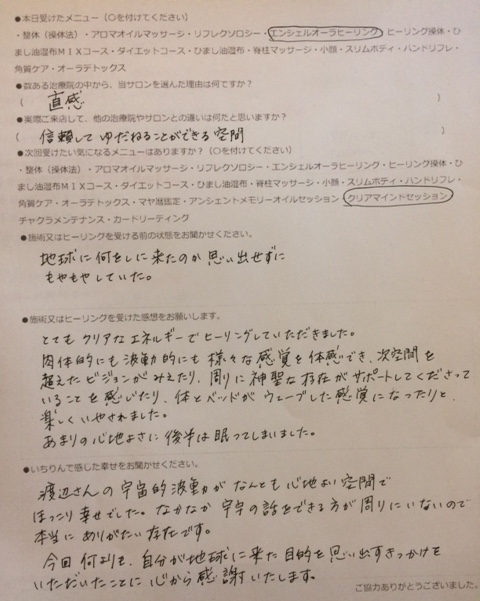 ●本日受けたメニュー（○を付けてください）
・整体（操体法）・アロマオイルマッサージ・リフレクソロジー・エンジェルオーラヒーリング・ヒーリング操体・ひ
まし油湿布ＭＩＸコース・ダイエットコース・ひまし油湿布・脊柱マッサージ・小顔・スリムボディ・ハンドリフレ・
角質ケア・オーラデトックス
●数ある治療院の中から、当サロンを選んだ理由は何ですか？
（ 直感 ）
●実際ご来店して、他の治療院やサロンとの違いは何だと思いますか？
（ 信頼して ゆだねることができる空間 ）
●次回受けたい気になるメニューはありますか？（○を付けてください）
・整体（操体法）・アロマオイルマッサージ・リフレクソロジー・エンジェルオーラヒーリング・ヒーリング操体・ひ
まし油湿布ＭＩＸコース・ダイエットコース・ひまし油湿布・脊柱マッサージ・小顔・スリムボディ・ハンドリフレ・
角質ケア・オーラデトックス・マヤ暦鑑定・アンシェントメモリーオイルセッション・クリアマインドセッション・
チャクラメンテナンス・カードリーティング
●施術又はヒーリングを受ける前の状態をお聞かせください。
地球に何をしに来たのか思い出せずに
もやもやしていた。
●施術又はヒーリングを受けた感想をお願いします。
とてもクリアなエネルギーでヒーリングしていただきました。
肉体的にも波動的にも様々な感覚を体感でき、次空間を
超えたビジョンがみえたり、周りに神聖な存在がサポートしてくださって
いることを感じたり、体とベッドがウェーブした感覚になったりと、
楽しくいやされました。
あまりの心地よさに後半は眠ってしまいました。
●いちりんで感じた幸せをお聞かせください。
渡辺さんの宇宙的波動がなんとも心地よい空間で
ほっこり幸せでした。なかなか宇宙の話をできる方が周りにいないので
本当にありがたい存在です。
今回何よりも、自分が地球に来た目的を思い出すきっかけを
いただいたことに心から感謝いたします。
ご協力ありがとうございました。